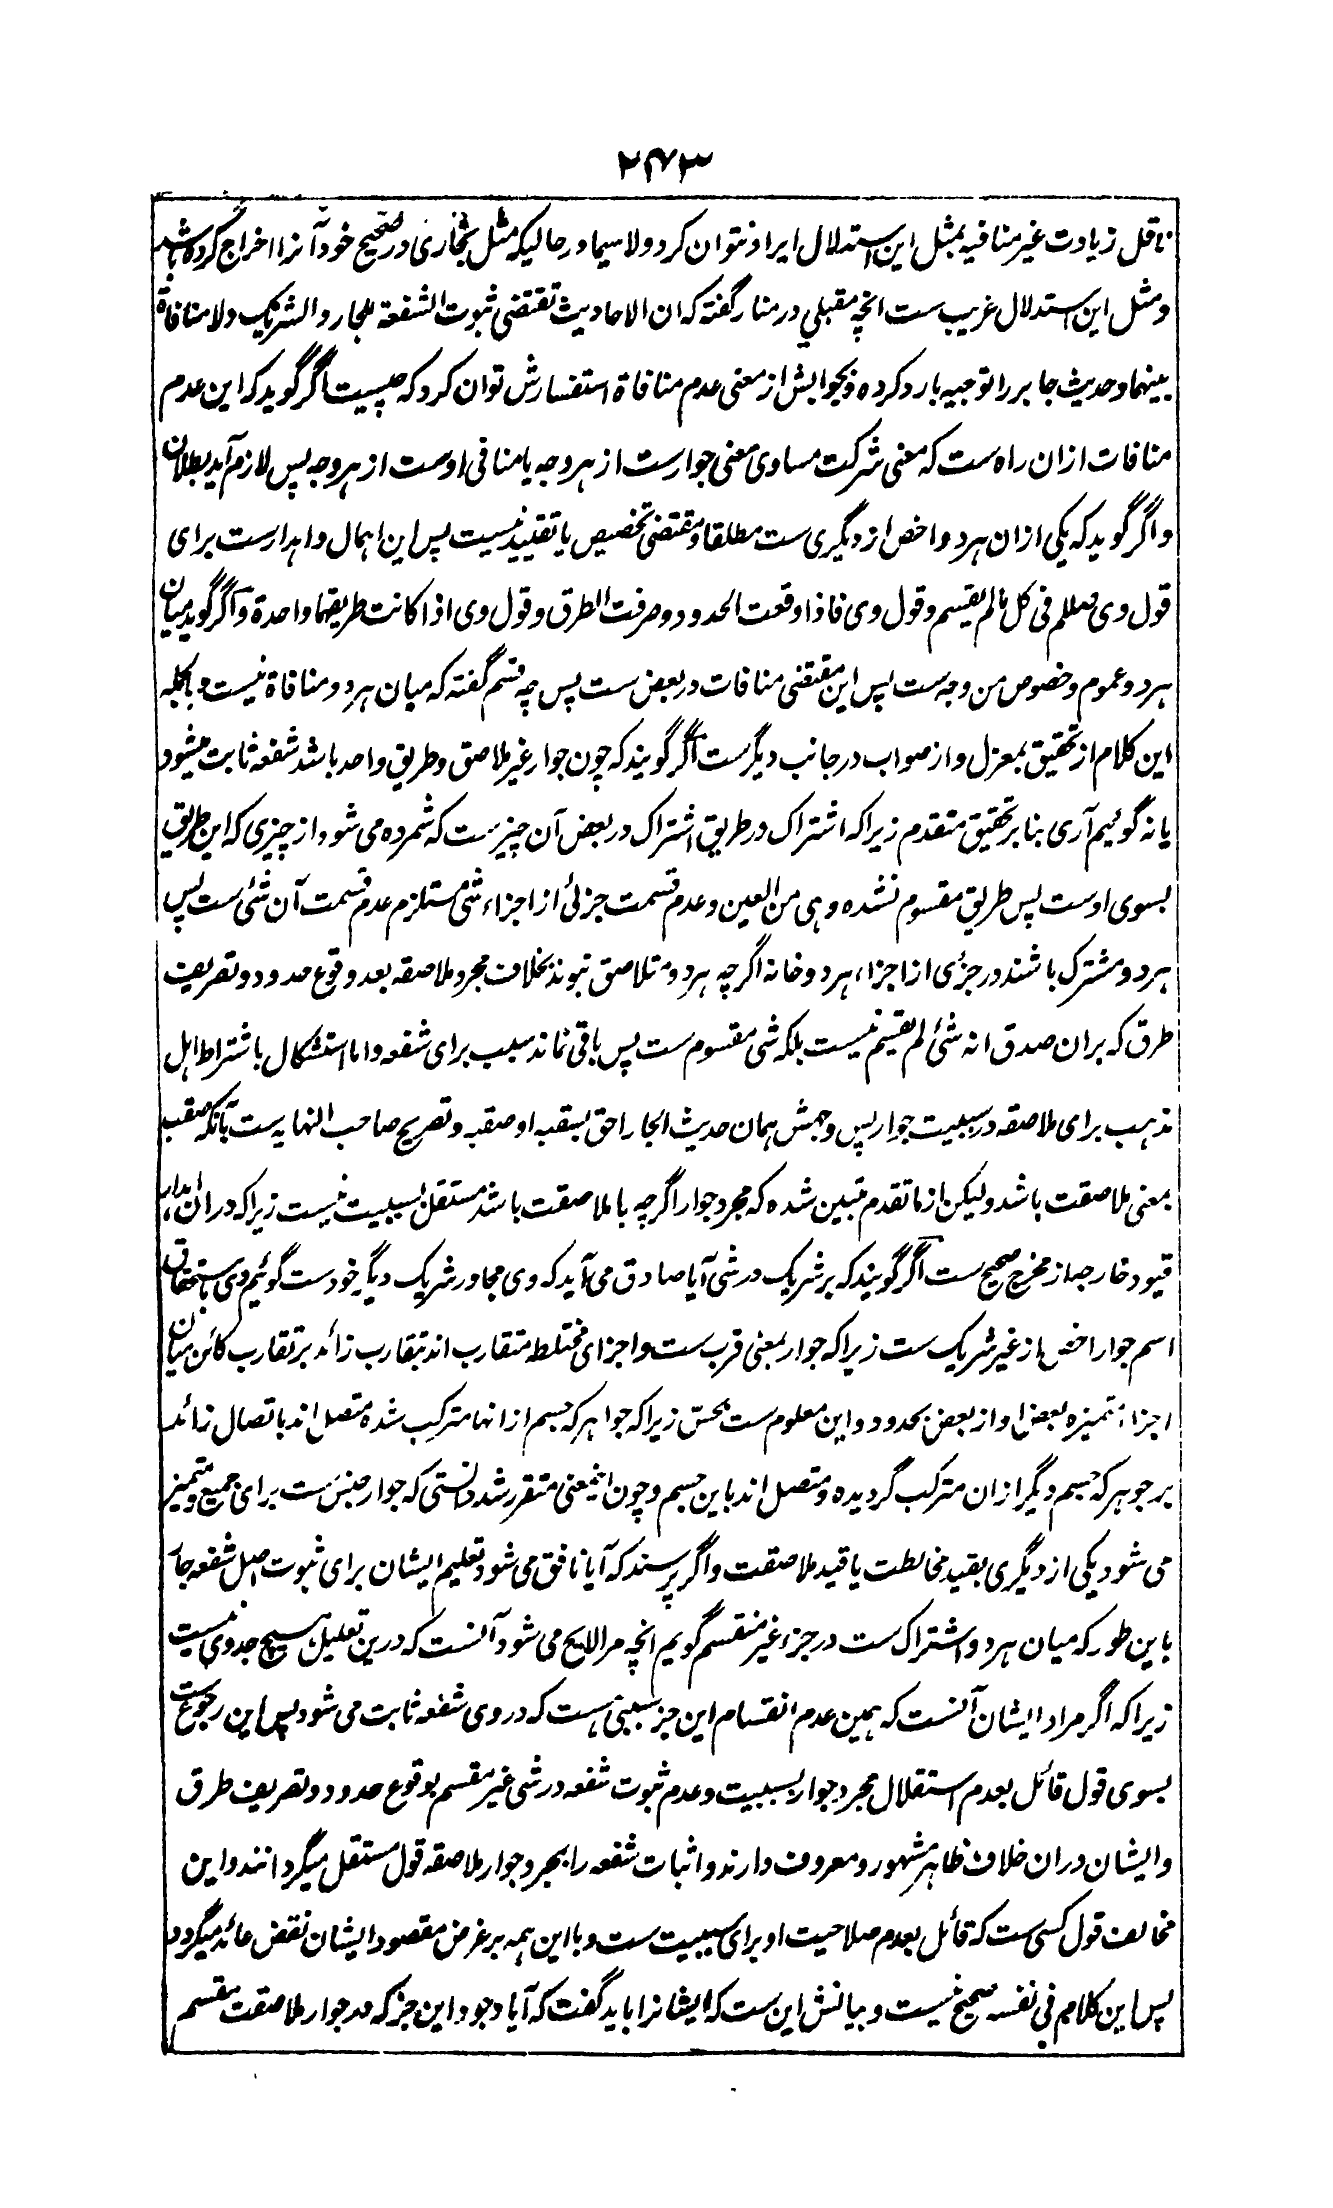 ۲۷۳
ناقل زیادت غیر منافیه بمثل این استدلال ایراد نتوان کرد و لا سیما در حالیکه مثل بخاری در صحیح خود آنرا اخراج کرده باشد
و مثل این استدلال غریب ست انچه مقبلی در منار گفته که ان الاحادیث تقتضی ثبوت الشفعة للجار و الشریک ولا منافاة
بینهما و حدیث جابر را توجیه بارد کرده و بجوابش از معنی عدم منافاة استفسارش توان کرد که چیست اگر گوید که این عدم
منافات ازان راه ست که معنی شرکت مساوی معنی جوار ست از هر وجه یا منافی اوست از هر وجه پس لازم آید بطلان
و اگر گوید که یکی ازان هر دو اخص از دیگری ست مطلقا و مقتضی تخصیص یا تقیید نیست پس این اهمال و اهدار ست برای
قول وی صللم فی کل مالم یقسم و قول وی فاذا وقعت الحدود و صرفت الطرق و قول وی اذا کانت طریقهما واحدة و اگر گوید میان
هر دو عموم و خصوص من وجه ست پس این مقتضی منافات در بعض ست پس چه قسم گفته که میان هر دو منافاة نیست و بالجمله
این کلام از تحقیق بمعزل و از صواب در جانب دیگر ست اگر گویند که چون جوار غیر ملاصق و طریق واحد باشد شفعه ثابت میشود
یا نه گوئیم آری بنابر تحقیق متقدم زیرا که اشتراک در طریق اشتراک در بعض آن چیز ست که شمرده می شود از چیزی که این طریق
بسوی اوست پس طریق مقسوم نشده و هی من العین و عدم قسمت جزئی از اجزاء شی مستلزم عدم قسمت آن شئ ست پس
هر دو مشترک باشند در جزئی از اجزاء هر دو خانه اگرچه هر دو متلاصق نبوند بخلاف مجرد ملاصقه بعد وقوع حدود و تصریف
طرق که بران صدق انه شئ لم یقسم نیست بلکه شی مقسوم ست پس باقی نماند سبب برای شفعه و اما استشکال باشتراط اهل
مذهب برای ملاصقه در سببیت جوار پس وجهش همان حدیث الجار احق بسقبه او صقبه و تصریح صاحب النهایه ست بآنکه صقب
بمعنی ملاصقت باشد و لیکن از ما تقدم متبین شده که مجرد جوار اگرچه با ملاصقت باشد مستقل بسببیت نیست زیرا که دران اهدار
قیود خارجه از مخرج صحیح ست اگر گویند که بر شریک در شی آیا صادق می آید که وی مجاور شریک دیگر خود ست گوئیم وی باستحقاق
اسم جوار اخص از غیر شریک ست زیرا که جوار بمعنی قرب ست و اجزای مختلطه متقارب اند بتقارب زائد بر تقارب کائن میان
اجزاء متمیزه بعض او از بعض بحدود و این معلوم ست بحس زیرا که جواهر که جسم از انها مترکب شده متصل اند باتصال زائد
بر جوهر که جسم دیگر ازان مترکب گردیده و متصل اند باین جسم و چون اینمعنی متقرر شد دانستی که جوار جنس ست برای جمیع و متمیز
می شود یکی از دیگری بقید مخالطت یا قید ملاصقت و اگر پرسند که آیا نافق می شود تعلیم ایشان برای ثبوت اصل شفعه جار
باین طور که میان هر دو اشتراک ست در جزء غیر منقسم گویم انچه مرا لایح می شود آنست که درین تعلیل هیچ جدوی نیست
زیرا که اگر مراد ایشان آنست که همین عدم انقسام این جزء سببی هست که در وی شفعه ثابت می شود پس این رجوع ست
بسوی قول قائل بعدم استقلال مجرد جوار بسببیت و عدم ثبوت شفعه در شی غیر مقسم بوقوع حدود و تصریف طرق
و ایشان دران خلاف ظاهر مشهور و معروف دارند و اثبات شفعه را بمجرد جوار ملاصقه قول مستقل میگردانند و این
مخالف قول کسی ست که قائل بعدم صلاحیت او برای سببیت ست و با این همه بر غرض مقصود ایشان نقض عائد میگردد
پس این کلام فی نفسه صحیح نیست و بیانش این ست که ایشانرا باید گفت که آیا وجود این جزء که در جوار ملاصقت مقسم